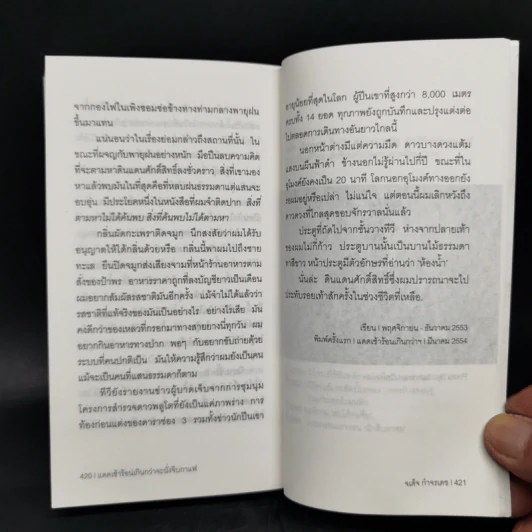 จากกองไฟในเพิงซอมซ่อข้างท่างท่ามกลางพายุฝน
ขึ้นมาแทน
แน่นอนว่าในเรื่องย่อมกล่าวถึงสถานที่นั้น ใน
ขณะที่ผจญกับพายุฝนอย่างหนัก มือปืนลบความคิด
ที่จะตามหาดินแดนศักดิ์สิทธิ์ลงชั่วคราว สิ่งที่เขามอง
หาแล้วพบมันในที่สุดคือที่หลบฝนธรรมดาแต่แสนจะ
อบอุ่น มีประโยคหนึ่งในหนังสือที่ผมจำติดปาก สิ่งที่
ตามหาไม่ได้ค้นพบ สิ่งที่ค้นพบไม่ได้ตามหา
กลิ่นผัดกะเพราติดจมูก นึกสงสัยว่าผมได้รับ
อนุญาตให้ได้กลิ่นด้วยหรือ กลิ่นนี้พาผมไปถึงชาย
ทะเล ยืนปิดจมูกส่งเสียงจามที่หน้าร้านอาหารตาม
สั่งของป้าพร อาหารราคาถูกที่ลงบัญชียาวเป็นเดือน
ผมอยากสัมผัสรสชาติมันอีกครั้ง แม้จำไม่ได้แล้วว่า
รสชาติที่แท้จริงของมันเป็นอย่างไร อย่างไรเสีย มัน
คงดีกว่าของเหลวที่กรอกมาทางสายยางนี่ทุกวัน ผม
อยากกินอาหารทางปาก พอๆ กับอยากขับถ่ายด้วย
ระบบที่คนปกติเป็น มันให้ความรู้สึกว่าผมยังเป็นคน
แม้จะเป็นคนที่แสนธรรมดาก็ตาม
ทีวียังรายงานข่าวผู้บาดเจ็บจากการชุมนุม
โครงการสำรวจดาวพลูโตที่ยังเป็นแค่ภาพร่าง การ
ท้องก่อนแต่งของดาราช่อง 3 รวมทั้งข่าวนักปีนเขา
420 | แดดเช้าร้อนเกินกว่าจะนั่งจิบกาแฟ
อายุน้อยที่สุดในโลก ผู้ปีนเขาที่สูงกว่า 8,000 เมตร
ครบทั้ง 14 ยอด ทุกภาพยังถูกบันทึกและปรุงแต่งต่อ
ไปตลอดการเดินทางอันยาวไกลนี้
นอกหน้าต่างมีแต่ความมืด ดาวบางดวงแต้ม
แสงบนผืนฟ้าดำ ข้างนอกไม่รู้ผ่านไปกี่ปี ขณะที่ใน
อุโมงค์ยังคงเป็น 20 นาที โลกนอกอุโมงค์ทางออกยัง
รอผมอยู่หรือเปล่า ไม่แน่ใจ แต่ตอนนี้ผมเลิกหวังถึง
ดาวดวงที่ไกลสุดขอบจักรวาลนั่นแล้ว
ประตูที่ถัดไปจากชั้นวางทีวี ห่างจากปลายเท้า
ของผมไม่กี่ก้าว ประตูบานนั้นเป็นบานไม้ธรรมดา
ทาสีขาว หน้าประตูมีตัวอักษรที่อ่านว่า 'ห้องน้ำ'
นั่นล่ะ ดินแดนศักดิ์สิทธิ์ซึ่งผมปรารถนาจะไป
ประทับรอยเท้าสักครั้งในช่วงชีวิตที่เหลือ.
เขียน | พฤศจิกายน - ธันวาคม 2553
พิมพ์ครั้งแรก | แดดเช้าร้อนเกินกว่าฯ | มีนาคม 2554
จเด็จ กำจรเดช | 421